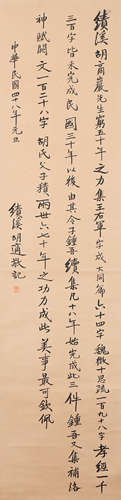 績溪胡商巖先生窮五十年之力集王右軍字成大同六十四字魏徵十思疏一百九十八字孝經一千
三百字皆未完成民國三十年以後由其令子鍾吾續集凡十八年始完成此三件鍾吾又集補洛
神賦闕文一百二十八字胡氏父子積兩世六十年之功力成此美事最可欽佩
中華民國四十八年元旦
績溪胡適敬記